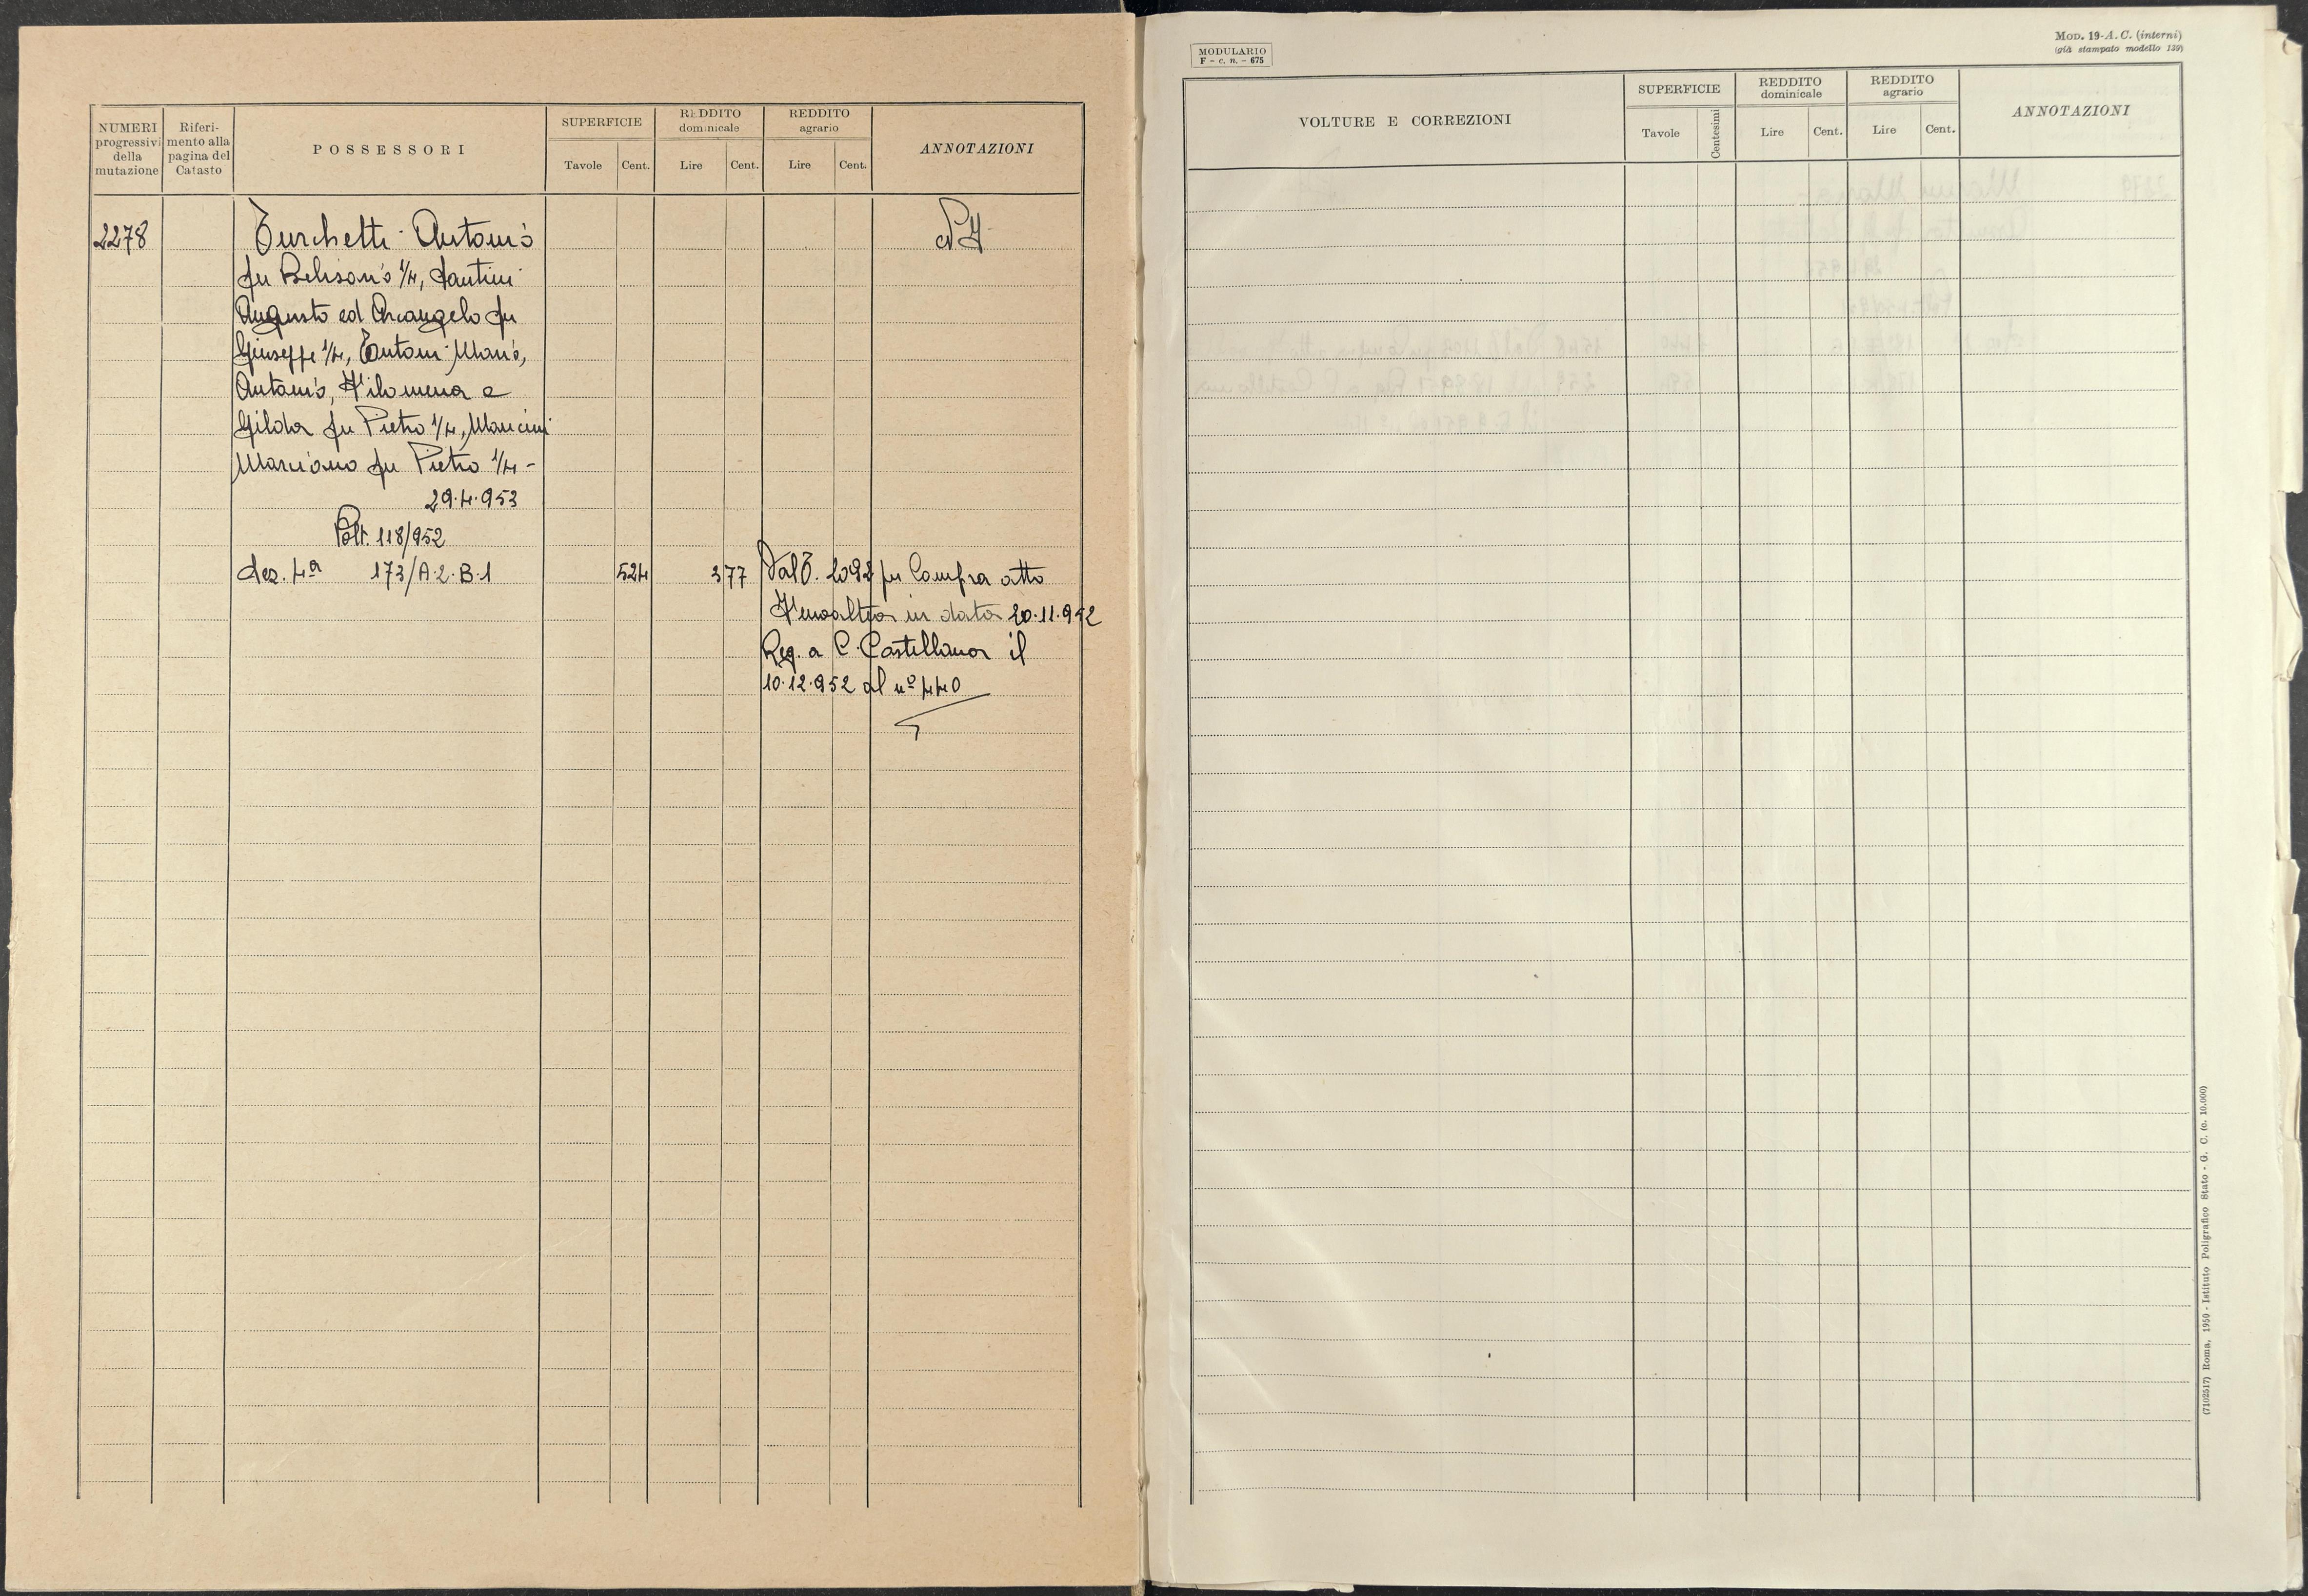 NUMERI progressivi della mutazione
Riferimento alla pagina del Catasto
POSSESSORI
SUPERFICIE
Tavole Cent.
REDDITO dominicale
Lire Cent.
REDDITO agrario
Lire Cent.
ANNOTAZIONI
2278 Turchetti Antonio
fu Belisario 1/4, Santini
Augusto ed Arcangelo fu
Giuseppe 1/4, Tontoni Mario,
Antonio, Filomena e
Gilda fu Pietro 1/4, Mancini
Marciano fu Pietro 1/4 -
29.4.953
Volt. 118/952
Sez. 4ª 173/A.2.B.1 524 3 77 Dal T. 2092 per Compra atto
in data 20.11.952
Reg. a C. Castellana il
10.12.952 al nº 440
MODULARIO
F - c. n. - 675
MOD. 19-A. C. (interni)
(già stampato modello 139)
VOLTURE E CORREZIONI
SUPERFICIE
Tavole Centesimi
REDDITO dominicale
Lire Cent.
REDDITO agrario
Lire Cent.
ANNOTAZIONI
(7102517) Roma, 1950 - Istituto Poligrafico Stato - G. C. (c. 10.000)